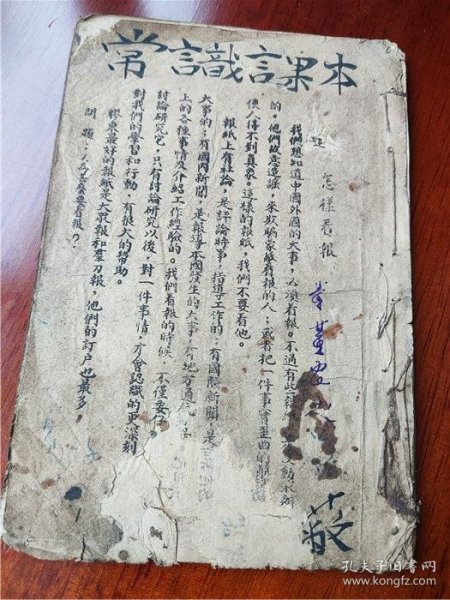 常識課本
怎樣看報
我們想知道中國外國的大事，必須看報。不過有些
的。他們故意造謠，來欺騙家或看報的人；或者把一件事實歪曲的
使人得不到真象。這樣的報紙，我們不要看他。
報紙上有社論，是評論時事，指導工作的；有國際新聞，是
大事的；有國內新聞，是報導本國發生的大事；有地方通
上的各種事情及介紹工作經驗的。我們看報的時候，不僅要
討論研究它，只有討論研究以後，對一件事情，才會認識的更深刻
對我們的學習和行動，有很大的幫助。
膠東最好的報紙是大衆報和羣力報，他們的訂户也最多。
問題：為什麼要看報？
孔夫子旧书网
www.kongfz.com